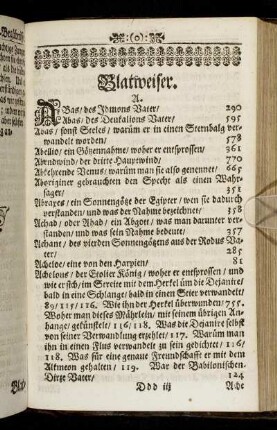 :(o):
Blatweiser.
A.
ABas/ des Idmons Vater/ 290
Abas/ des Deukalions Vater/ 595
Abas/ sonst Steles/ warüm er in einen Sternbalg ver-
wandelt worden/ 578
Abellio/ ein Götzennahme/ woher er entsprossen/ 361
Abendwind/ der dritte Hauptwind/ 770
Abkehrende Venus/ warüm man sie also genennet/ 665
Aboriginer gebrauchten den Specht als einen Wahr-
sager/ 351
Abraxes/ ein Sonnengötze der Egipter/ wen sie dadurch
verstanden/ und was der Nahme bezeichnet/ 358
Achad/ oder Ahad/ ein Abgott/ was man darunter ver-
standen/ und was sein Nahme bedeute/ 357
Achant/ des vierden Sonnengötzens aus der Rodus Va-
ter/ 285
Acheloe/ eine von den Harpien/ 81
Achelous/ der Etolier König/ woher er entsprossen/ und
wie er sich/ im Streite mit dem Herkul üm die Dejanire/
bald in eine Schlange/ bald in einen Stier verwandelt/
89/ 115/ 116. Wie ihn der Herkel überwunden/ 755.
Woher man dieses Mährlein/ mit seinem übrigen An-
hange/ gekünstelt/ 116/ 118. Was die Dejanire selbst
von seiner Verwandlung erzehlet/ 117. Warüm man
ihn in einen Flus verwandelt zu sein gedichtet/ 116/
118. Was für eine genaue Freundschaft er mit dem
Alkmeon gehalten/ 119. War der Babilonischen
Dirze Vater/ 124
Ddd iij Ache